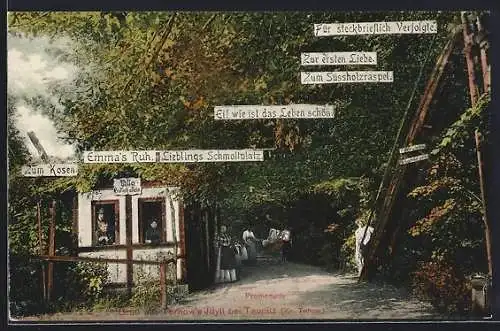 Für steckbrieflich Verfolgte.
Zur ersten Liebe.
Zum Süssholzraspel.
Ei! wie ist das Leben schön!
Emma's Ruh.
Lieblings Schmollplatz.
Zum Kosen
Villa
Promenade
Tornow's Idyll bei Teupitz (Kr. Teltow)